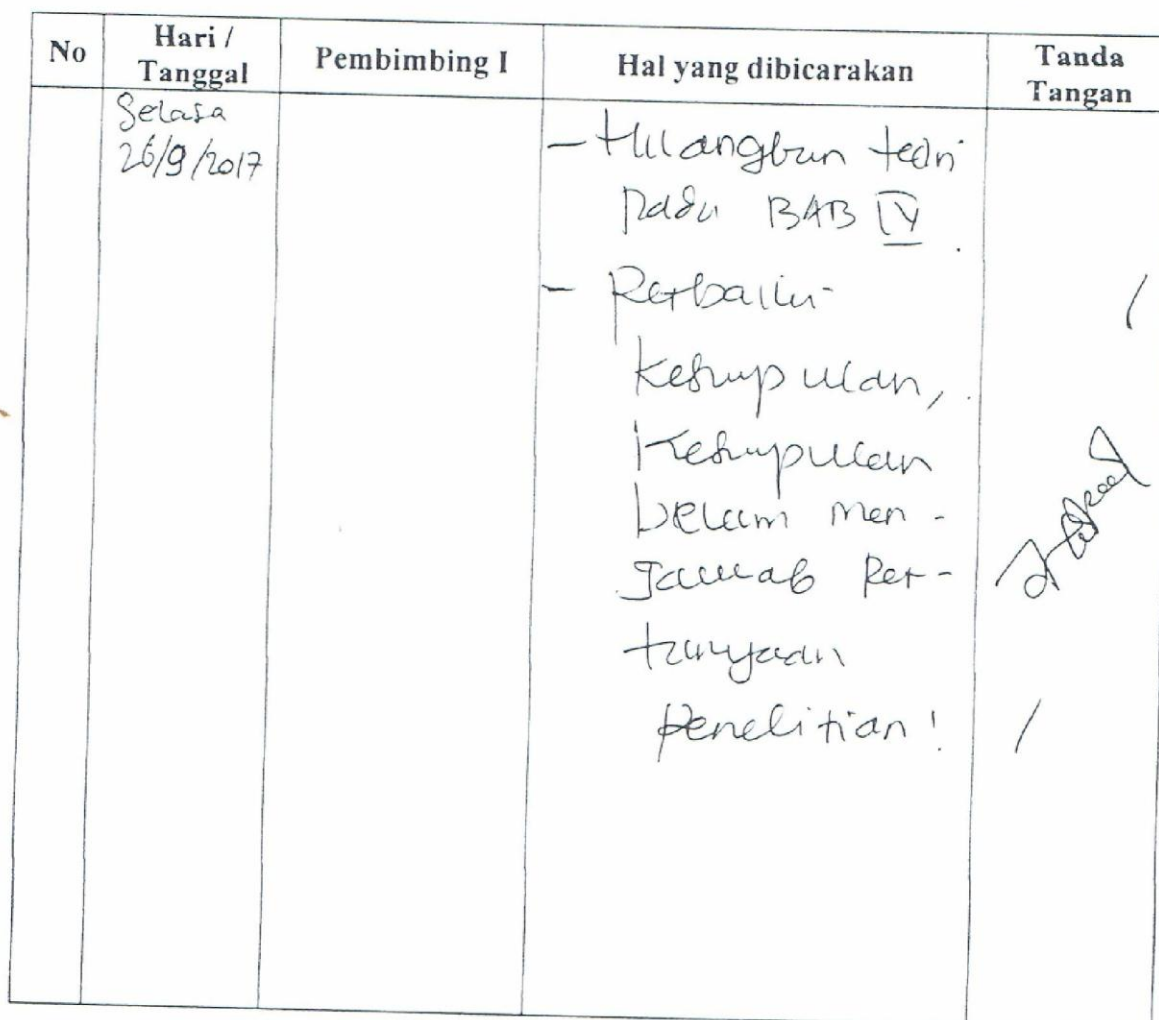 No
Hari /
Tanggal
Pembimbing I
Hal yang dibicarakan
Tanda
Tangan
Selasa
26/9/2017
- Hilangkan teori
pada BAB IV.
- Perbaiki
Kesimpulan,
Kesimpulan
belum men-
jawab per-
tanyaan
penelitian!